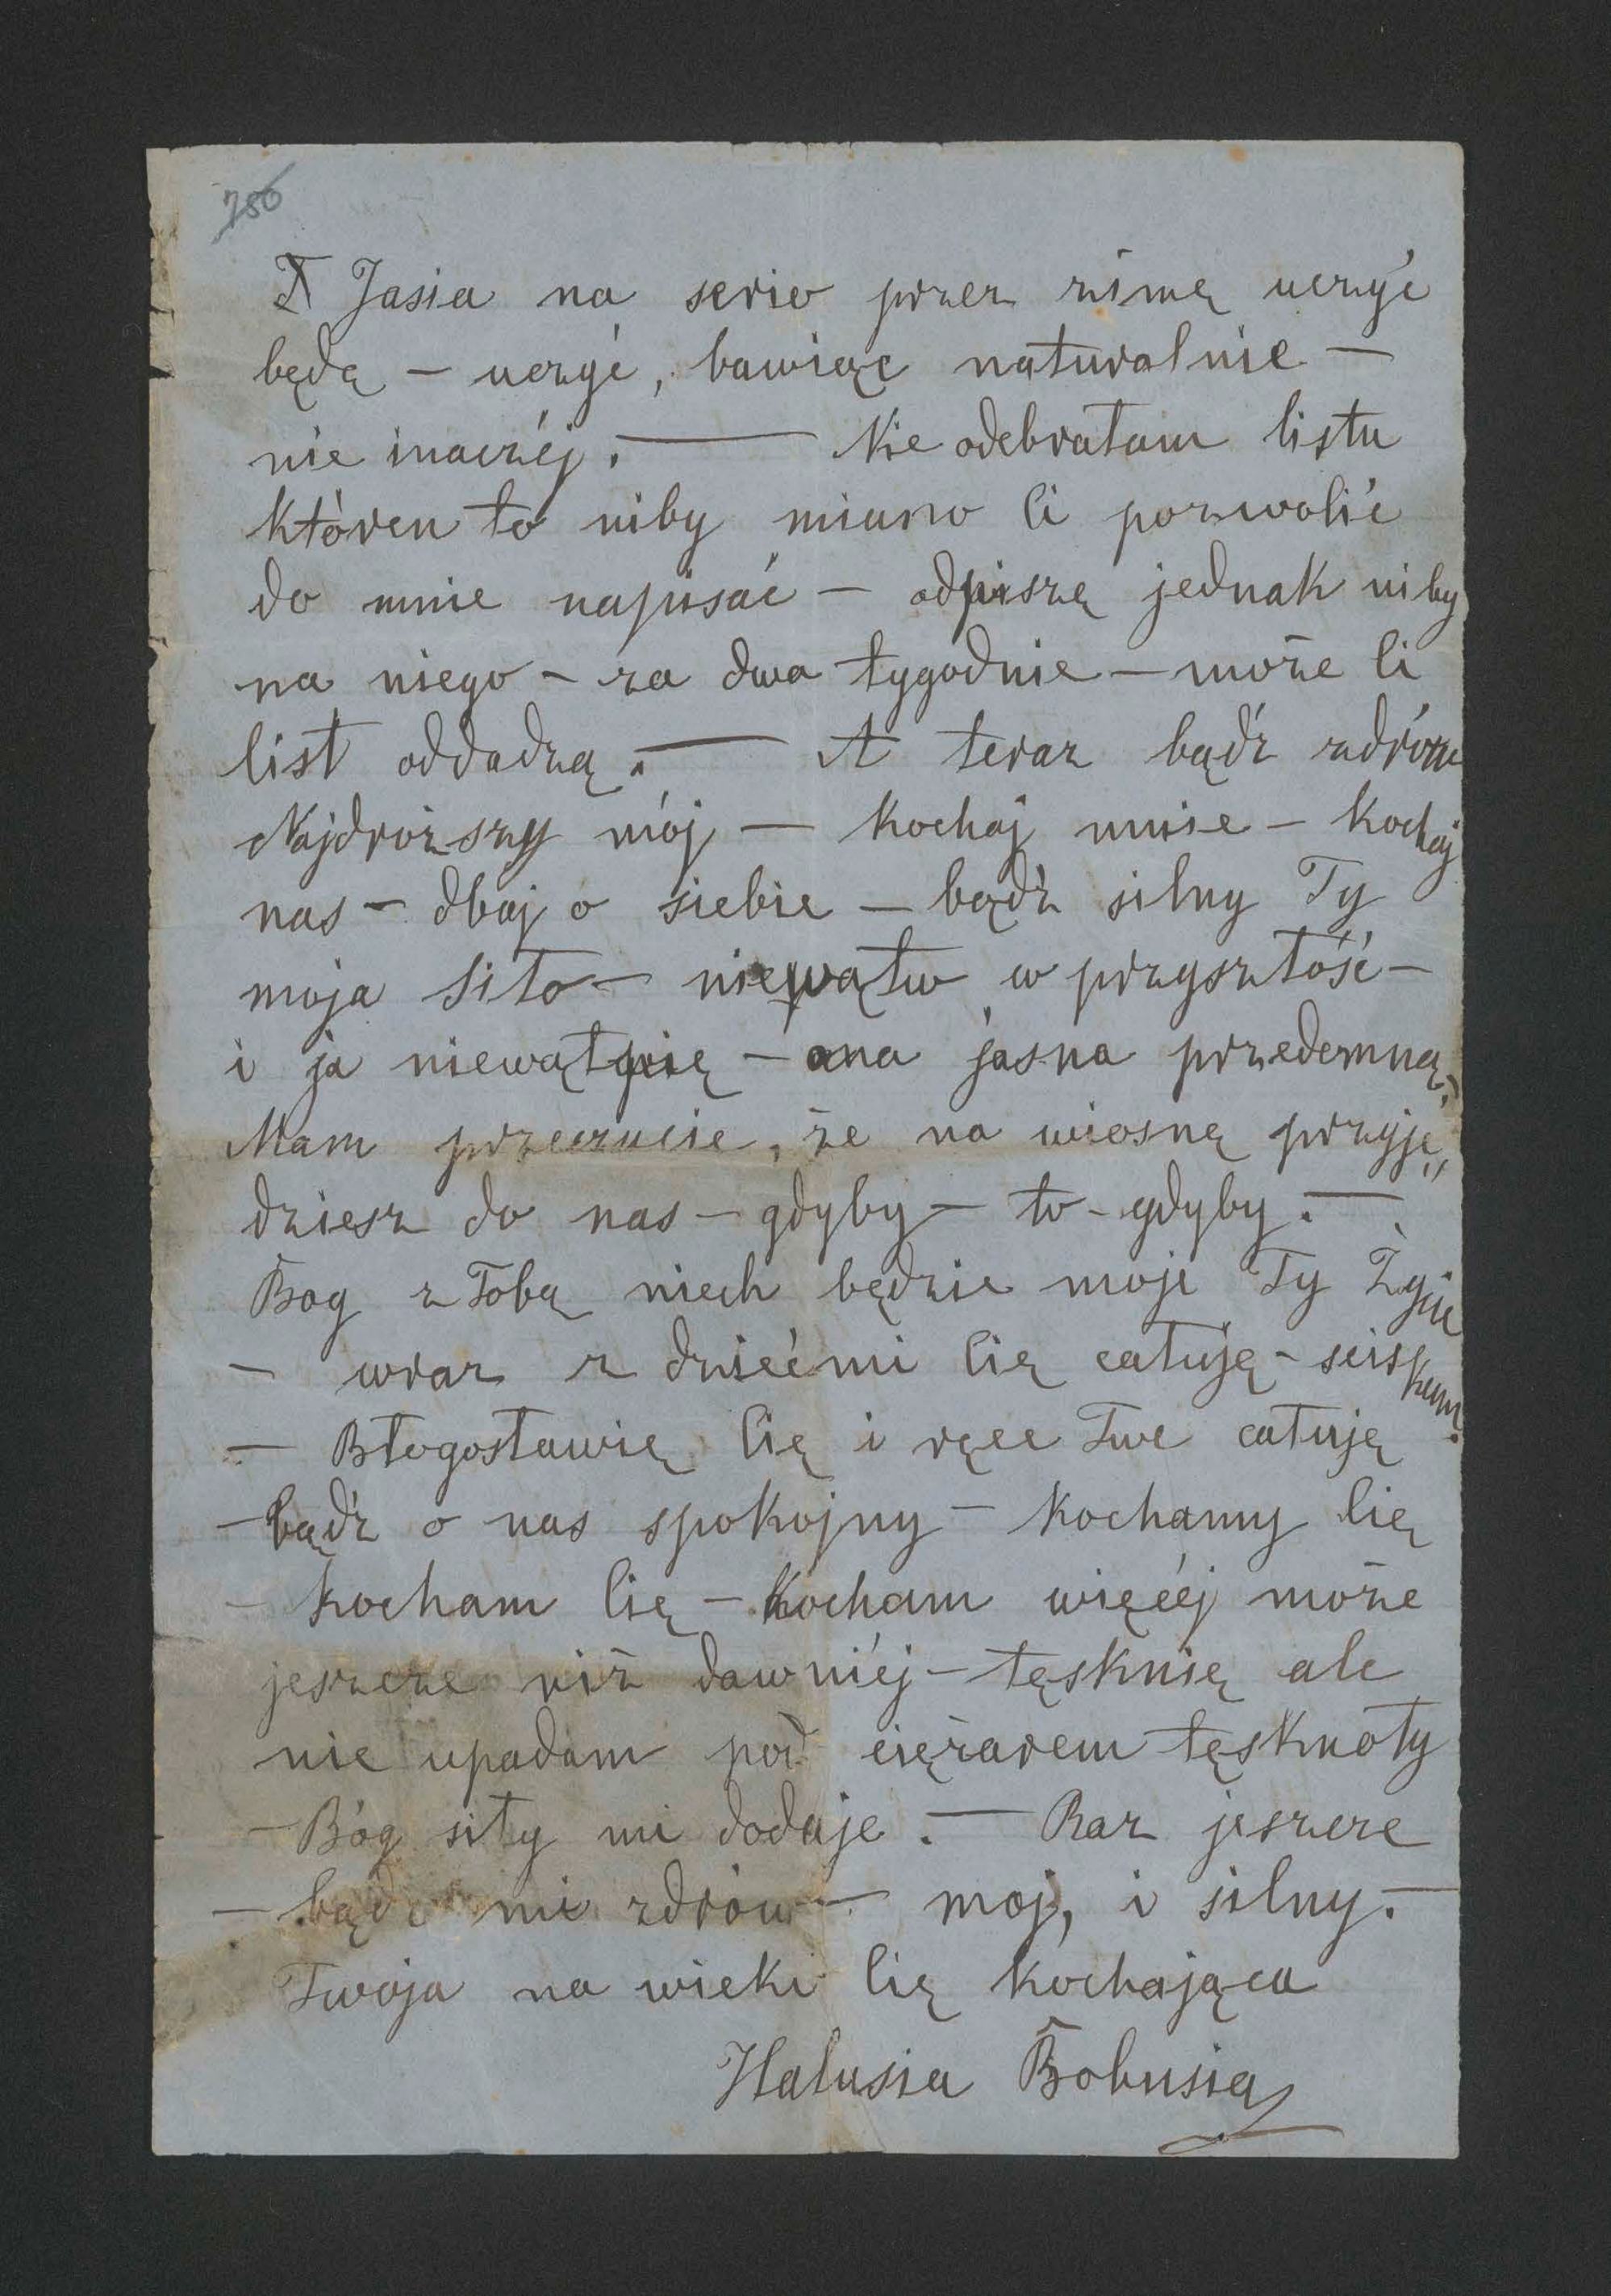 786
I Jasia na serio przez zimę uczyć
będę – uczyć, bawiąc naturalnie –
nie inaczéj. — Nie odebrałam listu
któren to niby miano Ci pozwolić
do mnie napisać – odpiszę jednak niby
na niego – za dwa tygodnie – może Ci
list oddadzą. — A teraz bądź zdrów
Najdroższy mój — kochaj mnie – kochaj
nas – dbaj o siebie – bądź silny Ty
moja siło – niewątp w przyszłość –
i ja niewątpię – ona jasna przedemną.
Mam przeczucie, że na wiosnę przyję„
dziesz do nas – gdyby – to – gdyby. —
Bog z Tobą niech będzie moje Ty Życie
– wraz z dziećmi Cię całuję – sciskam.
– Błogosławię Cię i ręce Twe całuję
– bądź o nas spokojny – kochamy Cię
– kocham Cię – kocham więcéj może
jeszcze niż dawniéj – tęsknię ale
nie upadam pod ciężarem tęsknoty
– Bóg siły mi dodaje. — Raz jeszcze
– bądź mi zdrów – moj, i silny. –
Twoja na wieki Cię kochająca
Halusia Bobusia